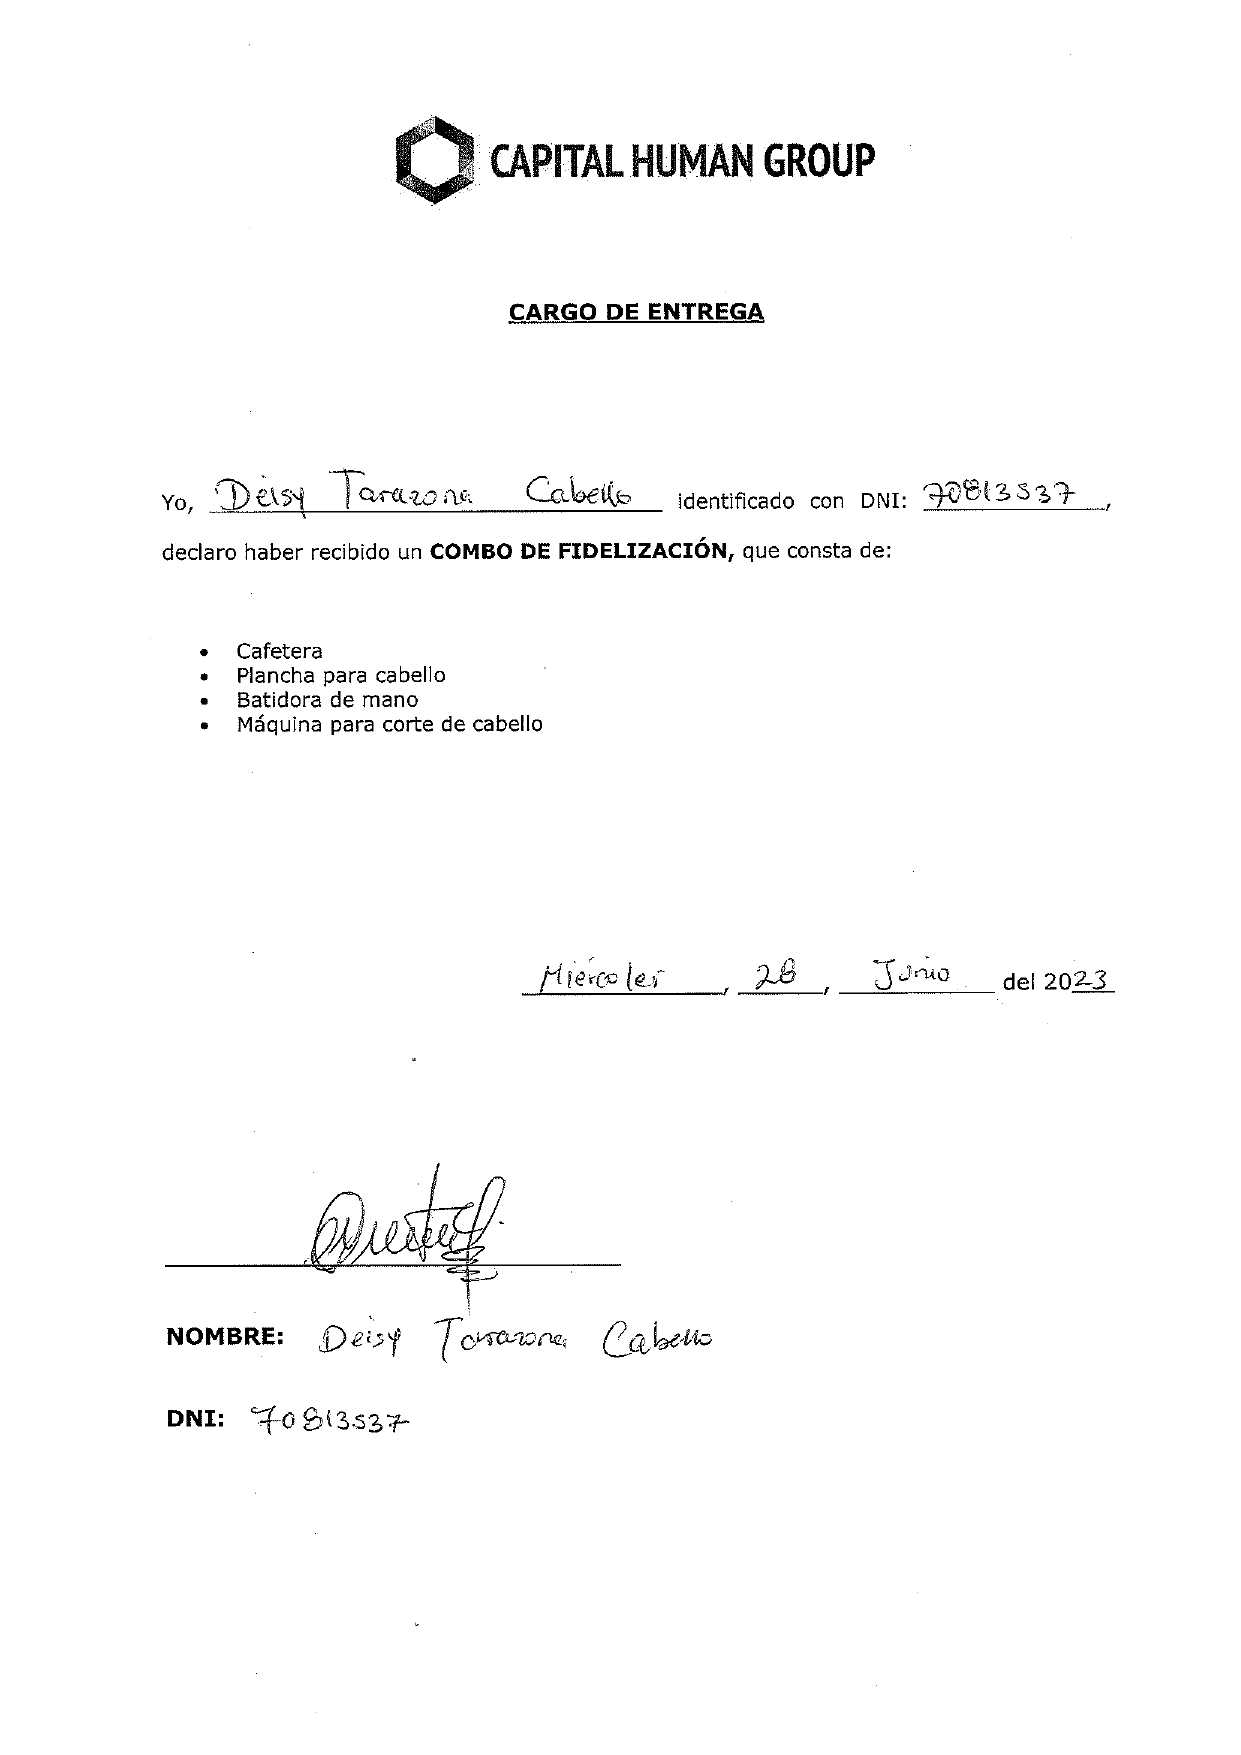 CAPITAL HUMAN GROUP
CARGO DE ENTREGA
Yo, Deisy Tarazona Cabello identificado con DNI: 70813537,
declaro haber recibido un COMBO DE FIDELIZACIÓN, que consta de:
• Cafetera
• Plancha para cabello
• Batidora de mano
• Máquina para corte de cabello
Miércoles, 28, Junio del 2023
NOMBRE: Deisy Tarazona Cabello
DNI: 70813537